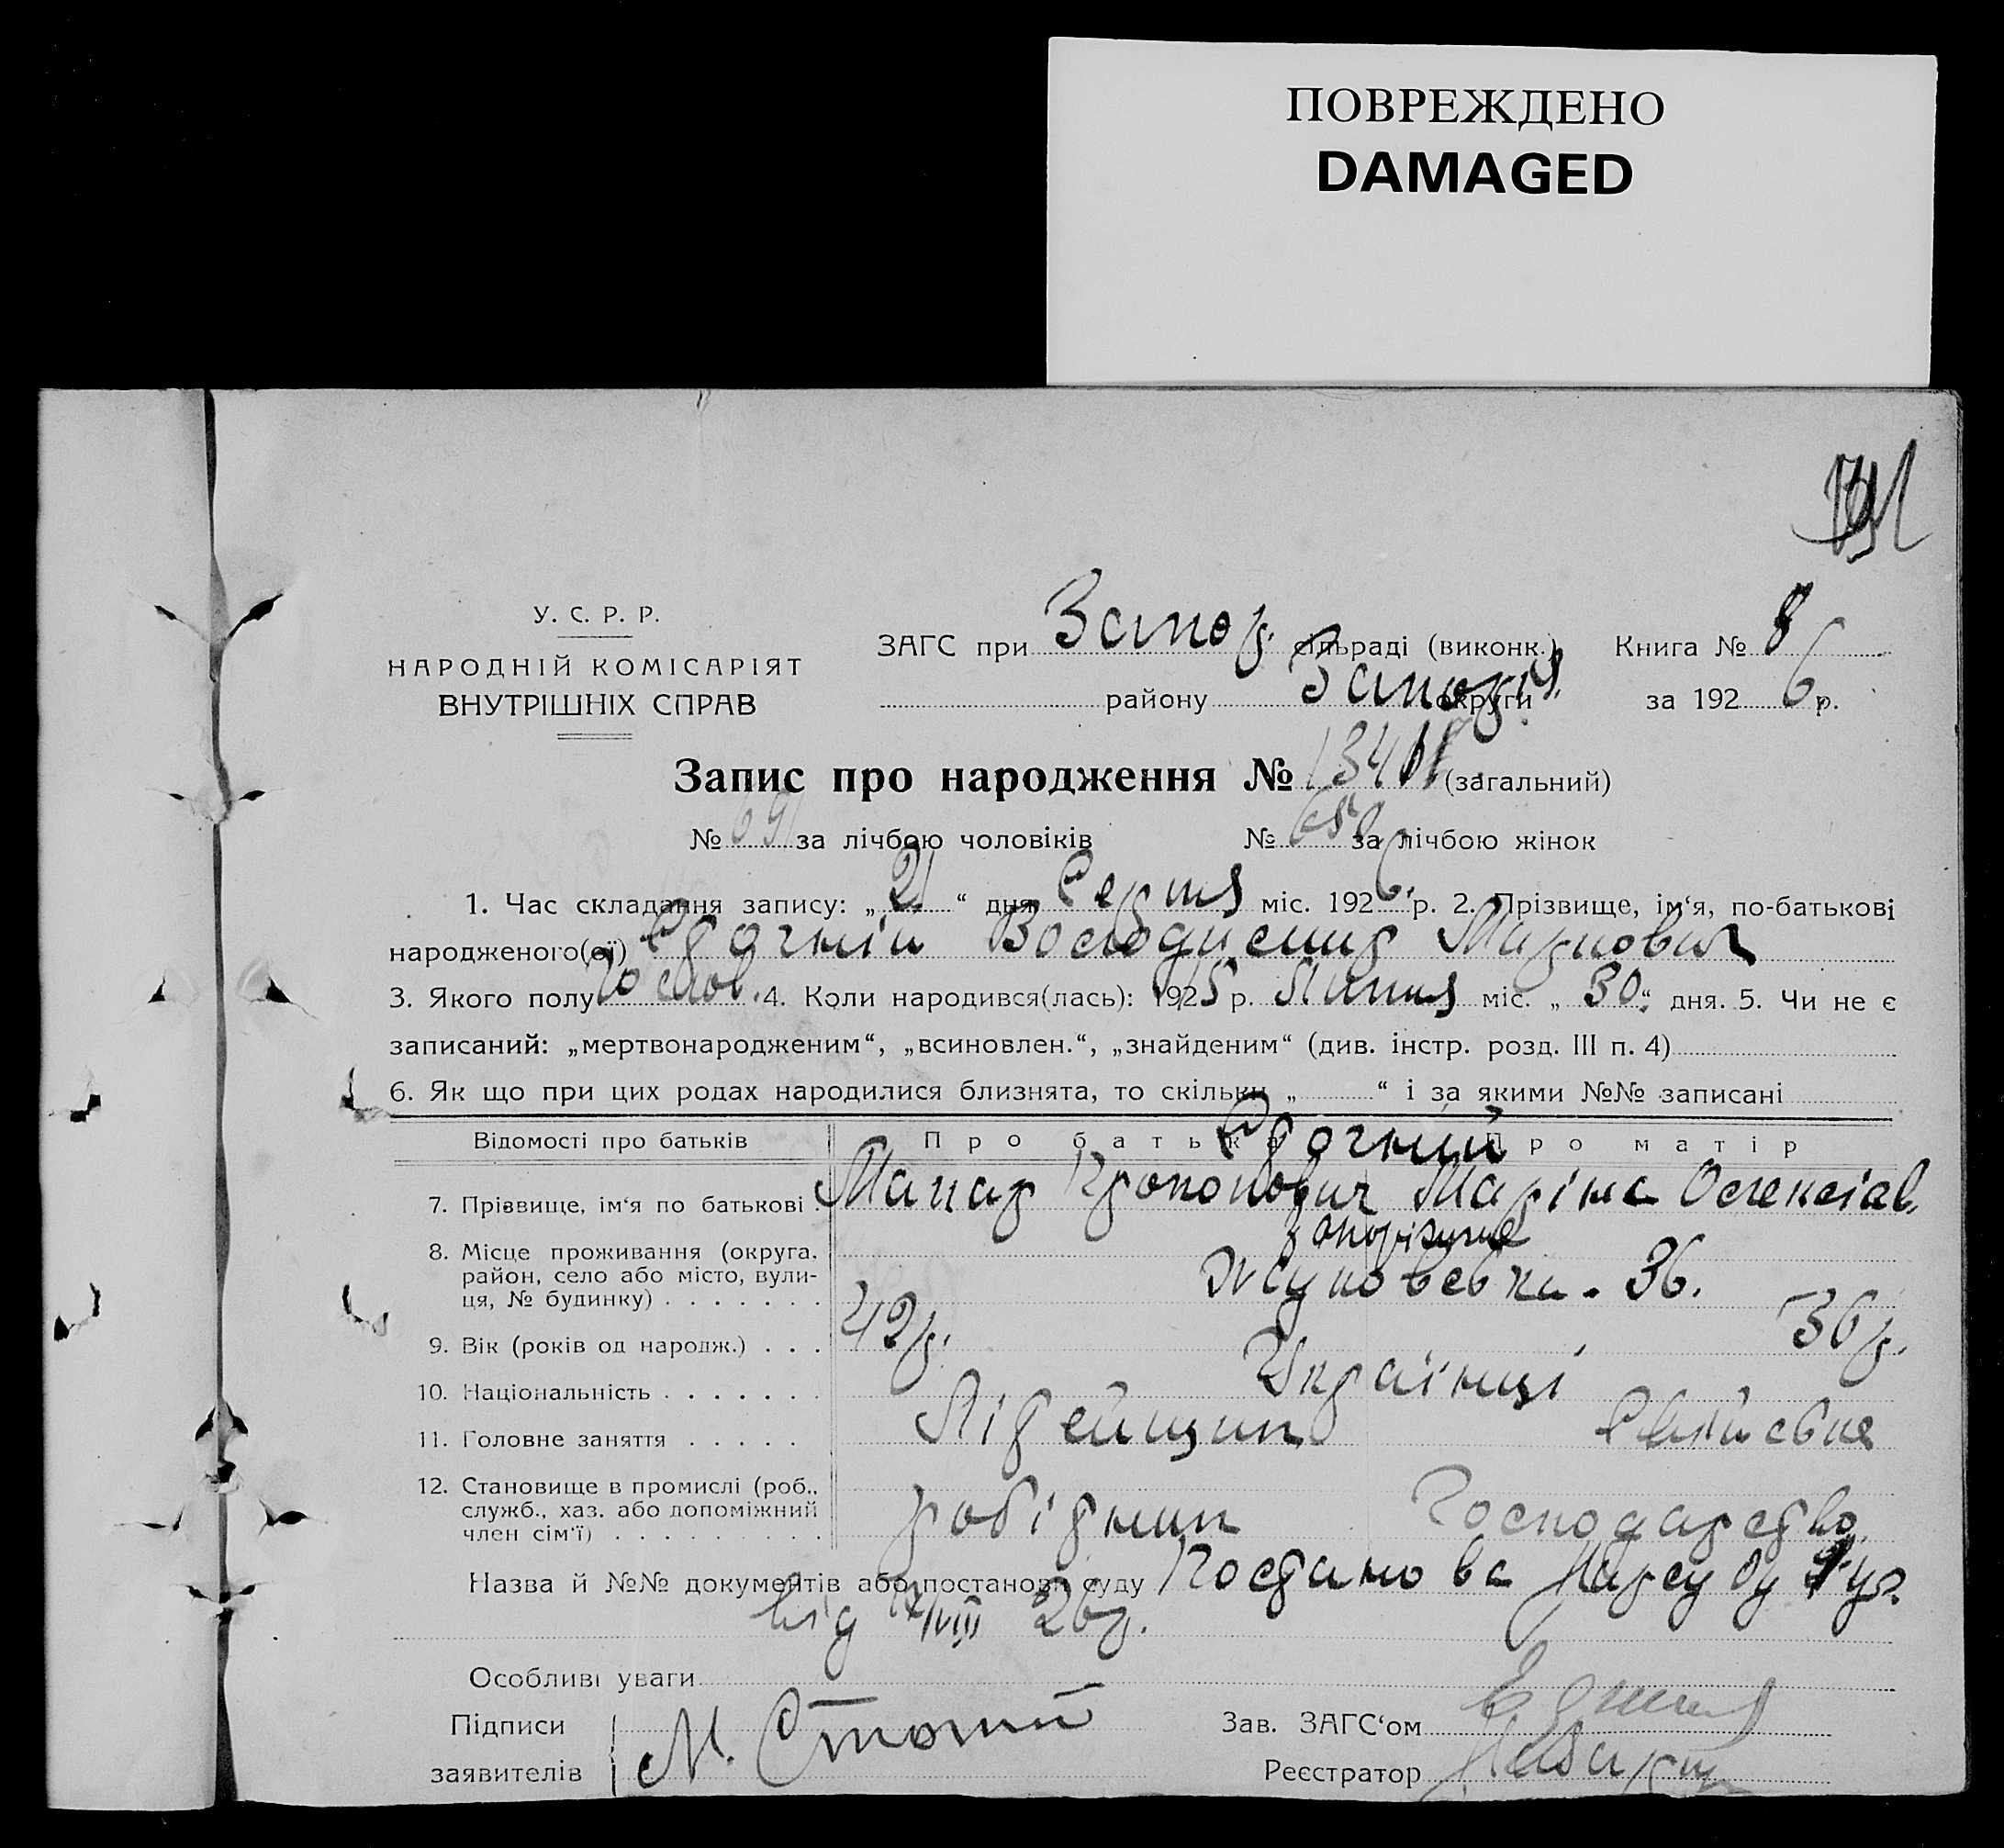 ПОВРЕЖДЕНО
DAMAGED
У. С. Р. Р.
НАРОДНІЙ КОМІСАРІЯТ
ВНУТРІШНІХ СПРАВ
ЗАГС при Запор. сільраді (виконк.) Книга № 8
району округи за 1926 р.
Запис про народження № (загальний)
№ 691 за лічбою чоловіків № за лічбою жінок
1. Час складання запису: „21“ дня Серпня міс. 1926 р. 2. Прізвище, ім‘я, по-батькові
народженого(ої) Стогній Володимир Макарович
3. Якого полу Чолов. 4. Коли народився(лась): 1925 р. Липня міс. „30“ дня. 5. Чи не є
записаний: „мертвонародженим“, „всиновлен.“, „знайденим“ (див. інстр. розд. III п. 4)
6. Як що при цих родах народилися близнята, то скільки „ “ і за якими №№ записані
Відомості про батьків Про батька Про матір
Стогній
7. Прізвище, ім‘я по батькові Макар Прокопович Марина
8. Місце проживання (округа, район, село або місто, вули-ця, № будинку) Запоріжжя
Жуковська. 36.
9. Вік (років од народж.) 42 р. 36 р.
10. Національність Українці
11. Головне заняття Літейщик
12. Становище в промислі (роб., служб., хаз. або допоміжний член сім‘ї) робітник Господарство
Назва й №№ документів або постанови суду Постанова Нарсуду
від VIII 26 р.
Особливі уваги
Підписи
заявителів М. Стогній
Зав. ЗАГС‘ом
Реєстратор